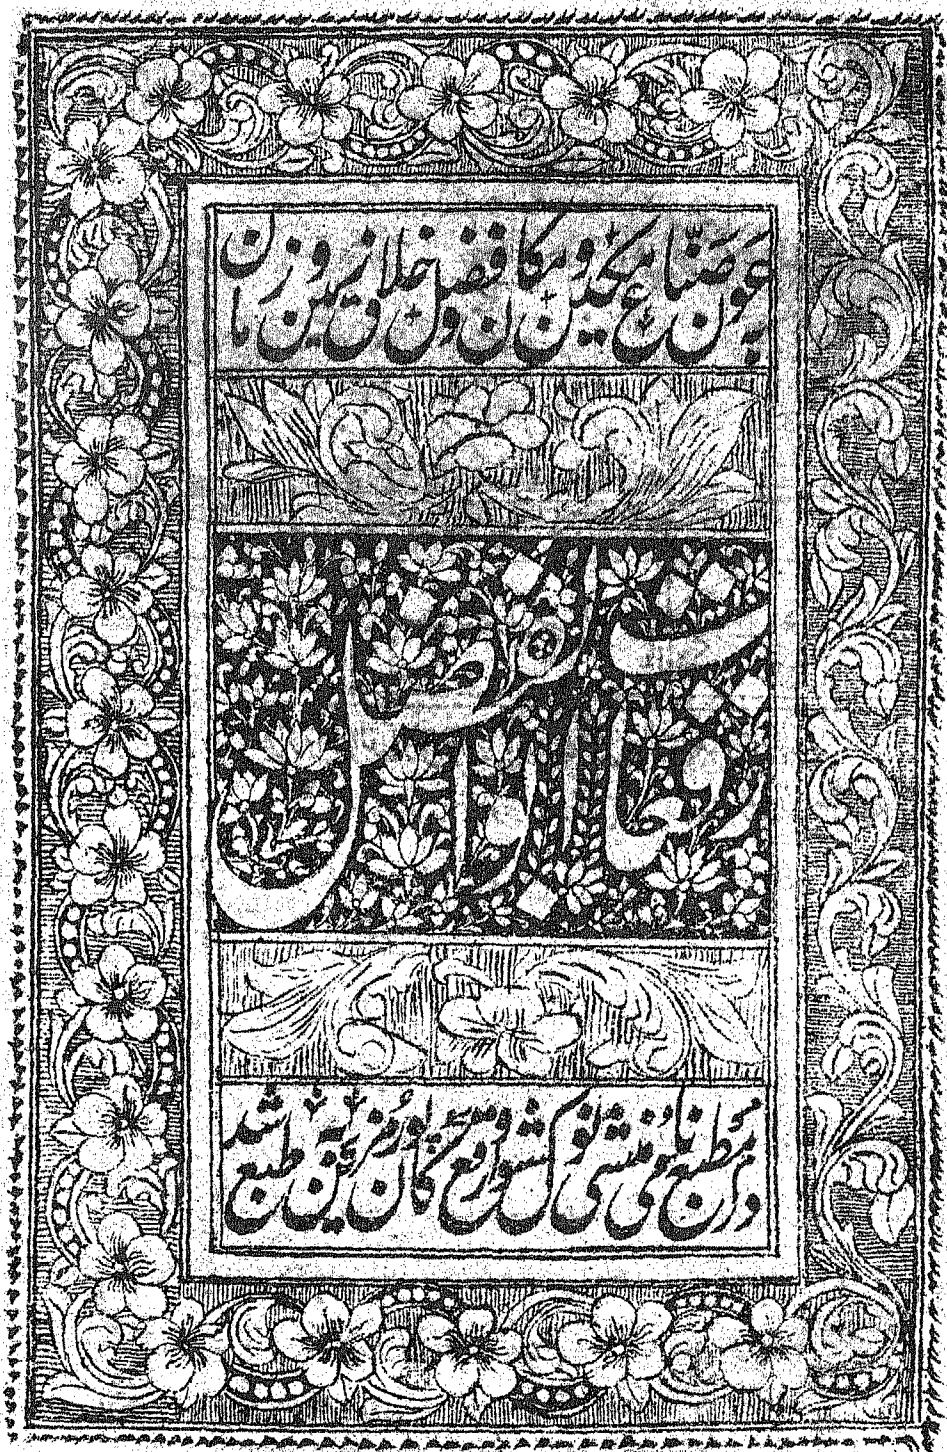 بعون صنّاع مکین و مکان و فضل خلاق زمین و زمان
رقعات ابوالفضل
در مطبع نامی منشی نولکشور واقع کانپور مزین بطبع شد